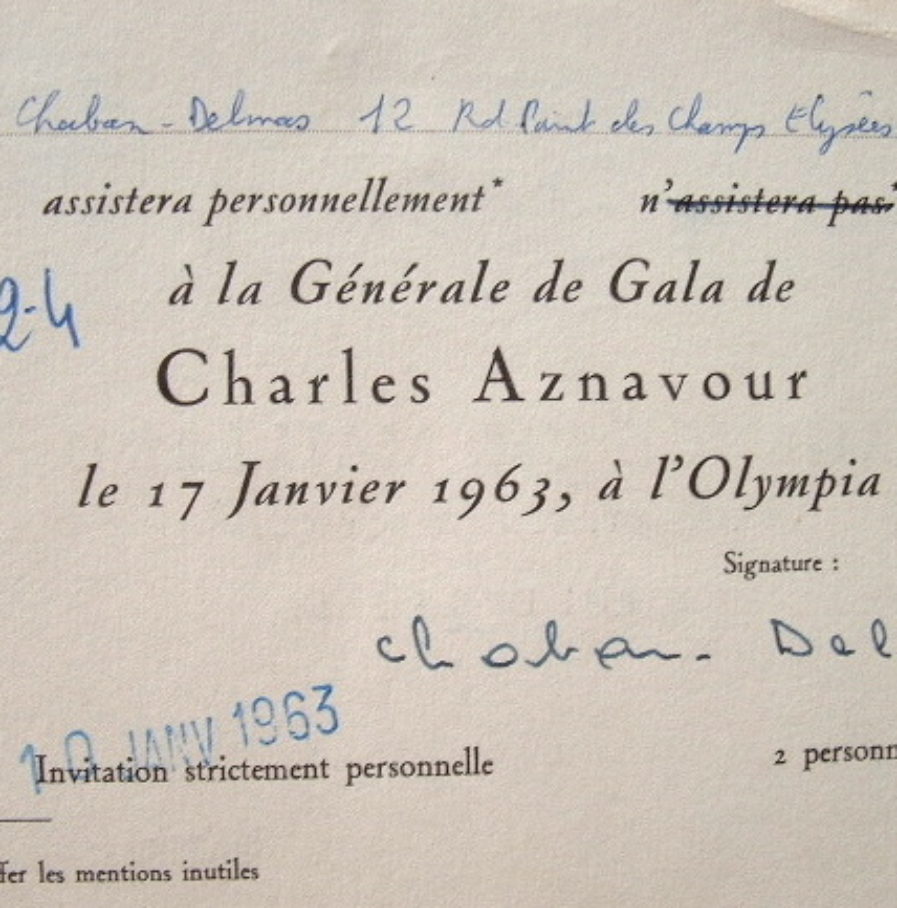 Chaban-Delmas 12 Rd Point des Champs Elysées
assistera personnellement* n'assistera pas*
à la Générale de Gala de
2-4
Charles Aznavour
le 17 Janvier 1963, à l'Olympia
Signature :
Chaban-Del
10 JANV 1963
Invitation strictement personnelle 2 personn
fer les mentions inutiles